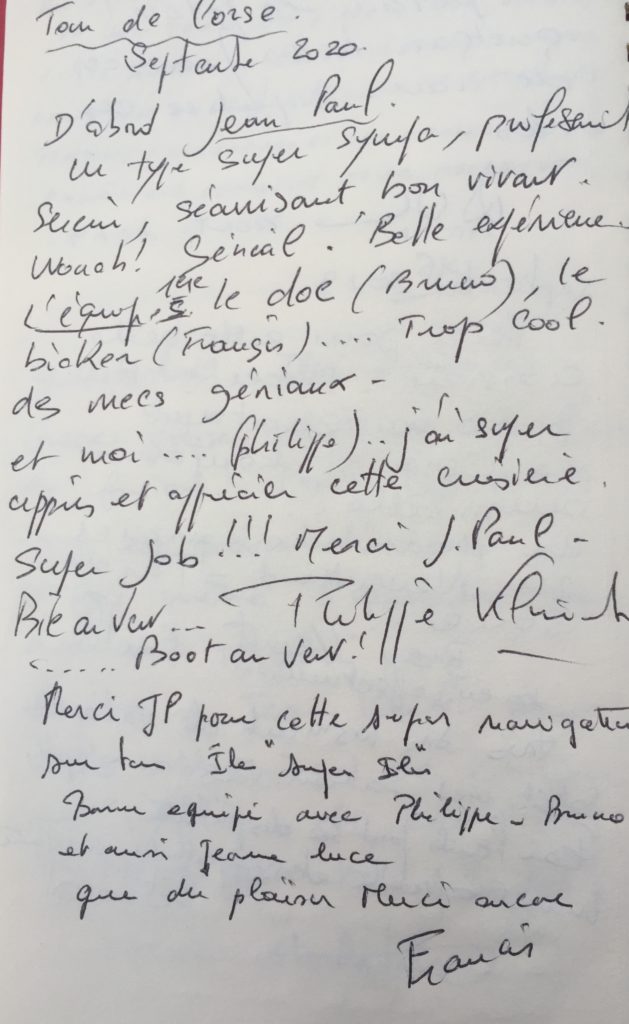 Tour de Corse.
Septembre 2020.
D'abord Jean Paul.
un type super sympa, professionnel
Serein, sécurisant bon vivant.
Wouah! Génial. Belle expérience.
L'équipe 1ère le doc (Bruno), le
bicker (Françis).... Trop Cool.
des mecs géniaux -
et moi.... (philippe).. j'ai super
appris et apprécier cette croisière.
Super Job!!! Merci J. Paul -
Bite au vent... Philippe
...... Boot au vent!
Merci JP pour cette super navigation
sur ton "Super"
Bonne equipe avec Philippe - Bruno
et aussi Jeanne luce
que du plaisir Merci encore
Francis